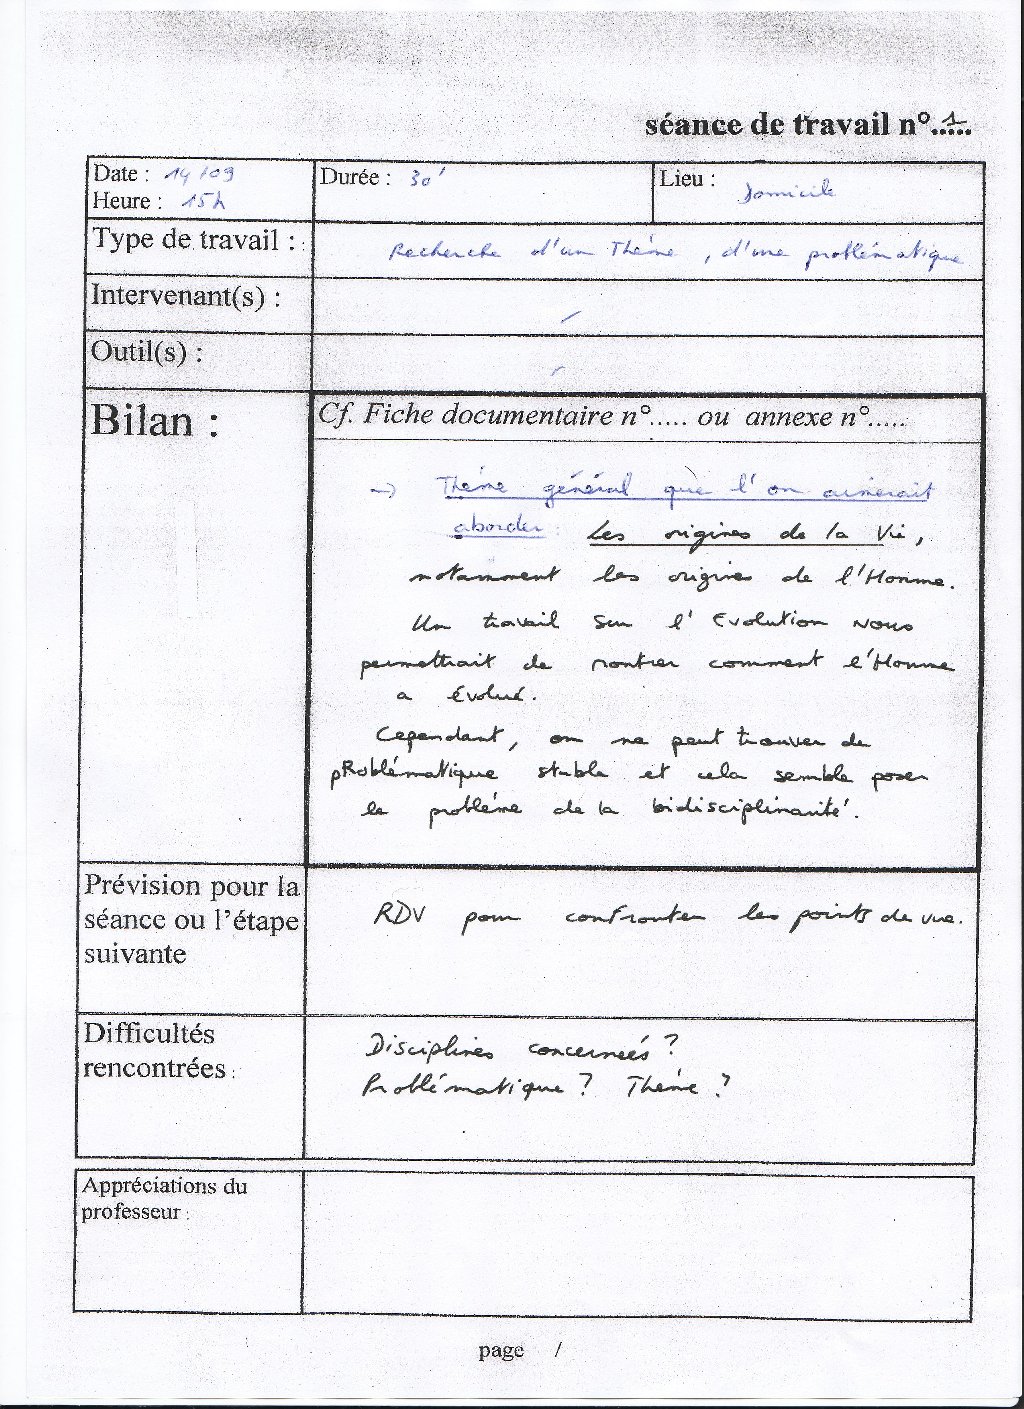 séance de travail n°..1..
Date : 14/09
Heure : 15h
Durée : 30'
Lieu : Domicile
Type de travail : Recherche d'un Thème, d'une problématique
Intervenant(s) : -
Outil(s) : -
Bilan :
Cf. Fiche documentaire n°..... ou annexe n°.....
→ Thème général que l'on aimerait
aborder : Les origines de la Vie,
notamment les origines de l'Homme.
Un travail sur l'Evolution nous
permettrait de montrer comment l'Homme
a évolué.
Cependant, on ne peut trouver de
pRoblématique stable et cela semble poser
le problème de la bidisciplinarité.
Prévision pour la
séance ou l'étape
suivante
RDV pour confronter les points de vue.
Difficultés
rencontrées :
Disciplines concernées ?
Problématique ? Thème ?
Appréciations du
professeur :
page /